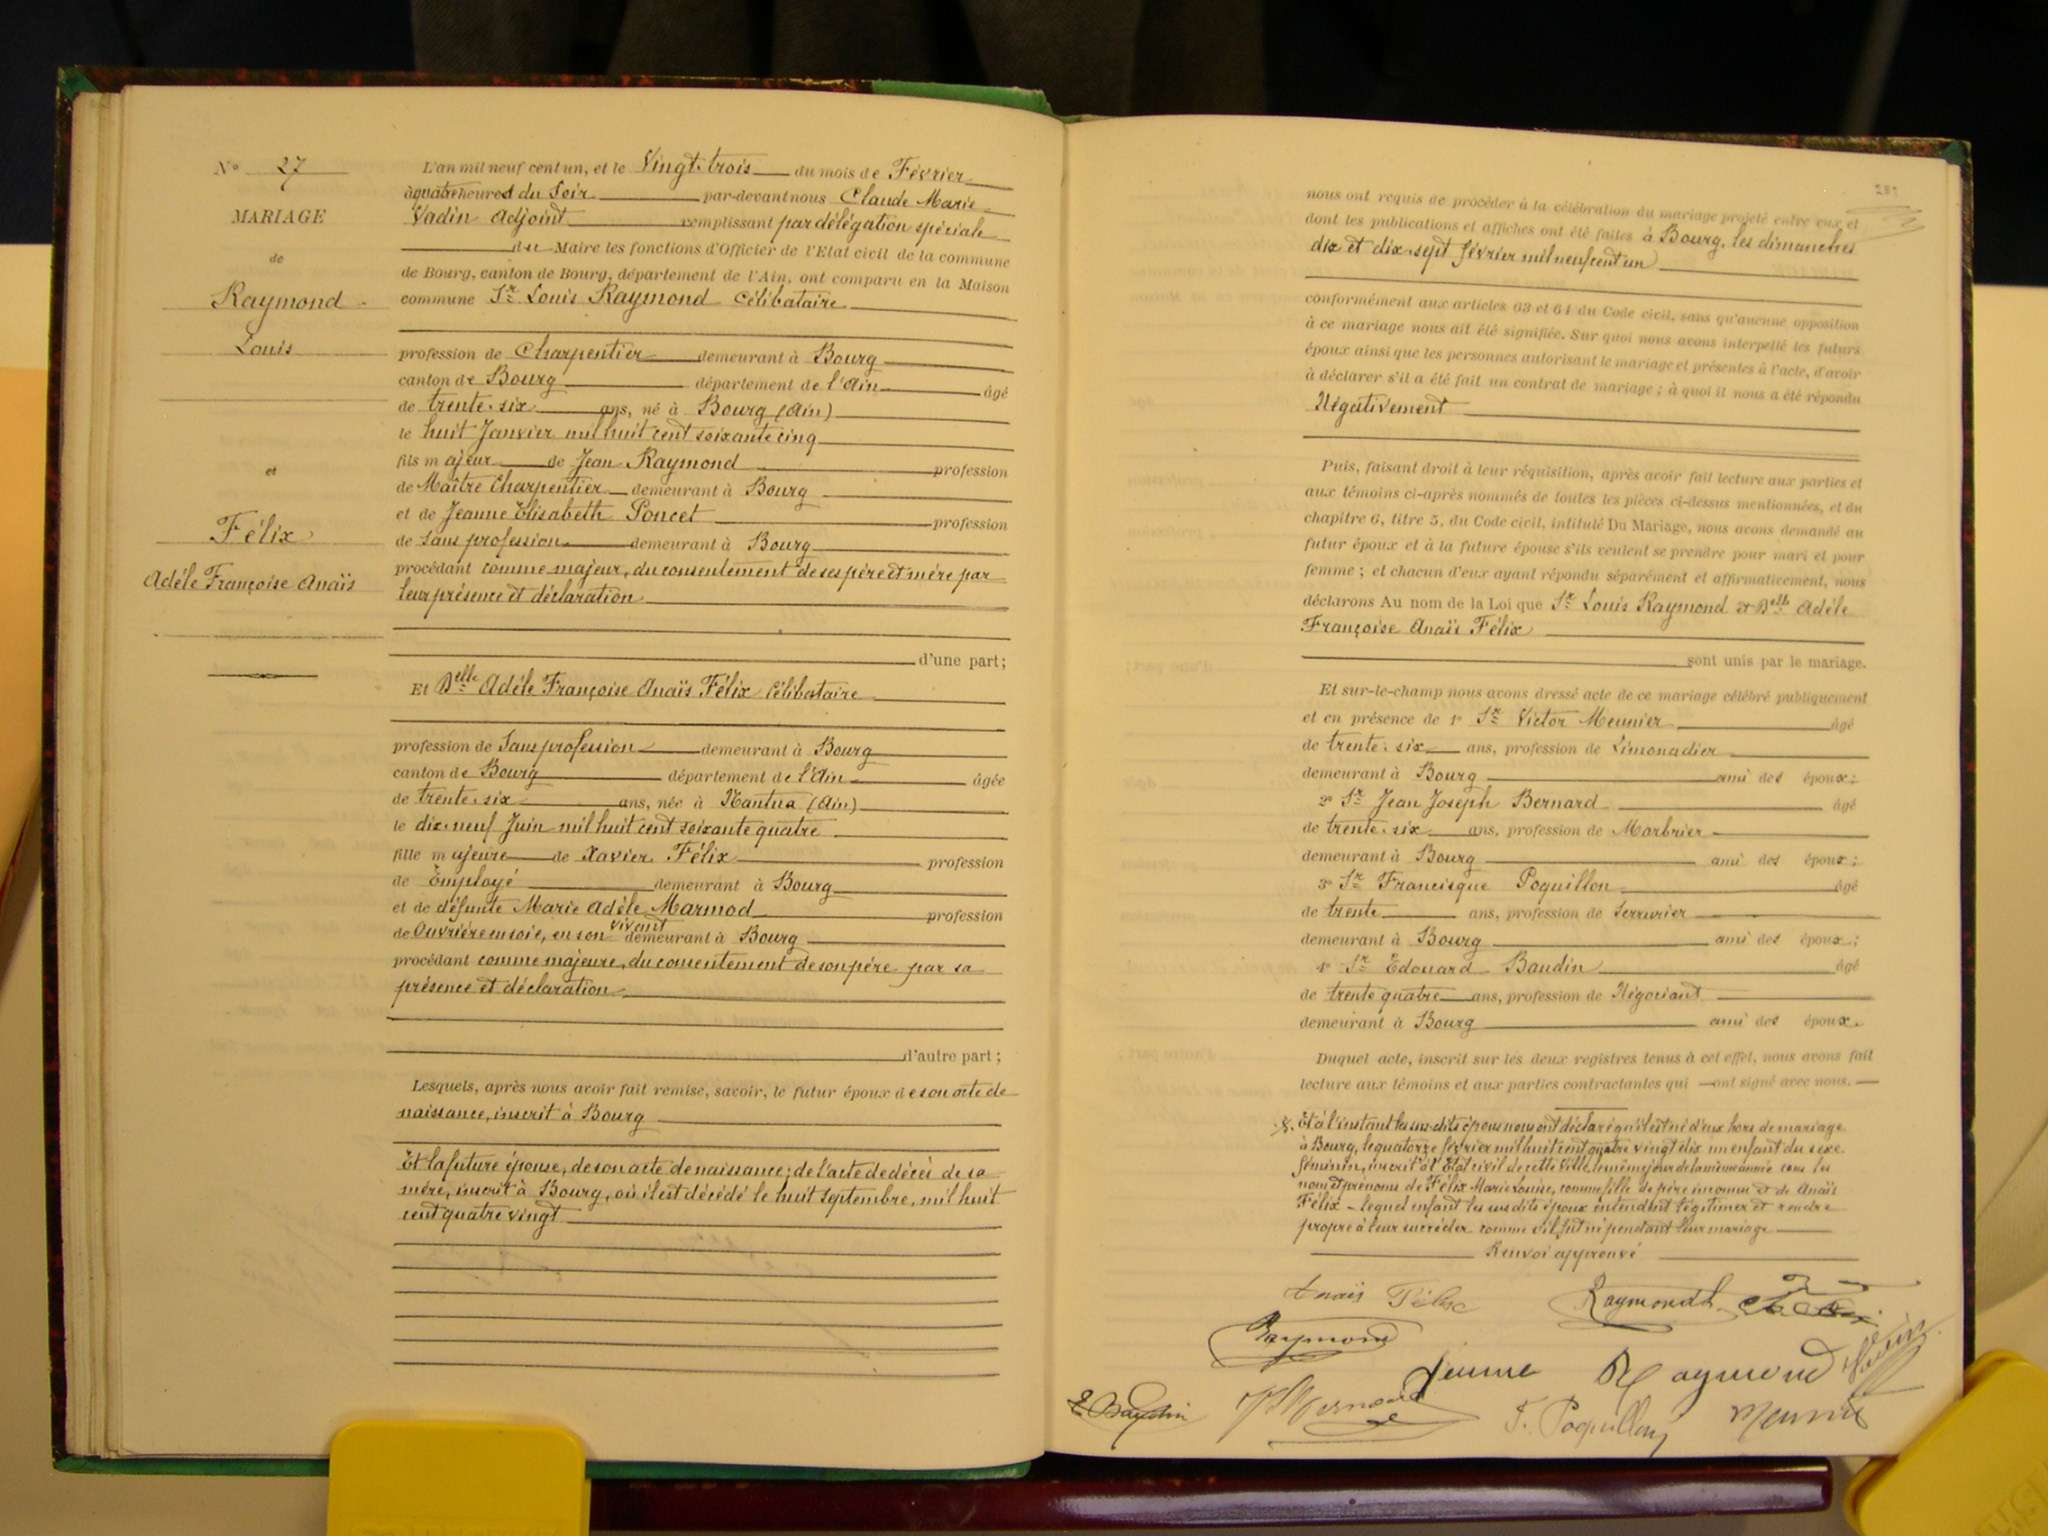 N° 27
MARIAGE
de
Raymond
Louis
et
Félix
Adéle Françoise Anaïs
L'an mil neuf cent un, et le Vingt-trois du mois de Février
à quatre heures du Soir par-devant nous Claude Marie
Vadin Adjoint remplissant par délégation spéciale
du Maire les fonctions d'Officier de l'Etat civil de la commune
de Bourg, canton de Bourg, département de l'Ain, ont comparu en la Maison
commune Sr Louis Raymond célibataire
profession de Charpentier demeurant à Bourg
canton de Bourg département de l'Ain âgé
de trente-six ans, né à Bourg (Ain)
le huit Janvier mil huit cent soixante cinq
fils majeur de Jean Raymond profession
de Maître Charpentier demeurant à Bourg
et de Jeanne Elisabeth Poncet profession
de Sans profession demeurant à Bourg
procédant comme majeur, du consentement de ses père et mère par
leur présence et déclaration
d'une part;
Et Delle Adéle Françoise Anaïs Félix célibataire
profession de Sans profession demeurant à Bourg
canton de Bourg département de l'Ain âgée
de trente-six ans, née à Nantua (Ain)
le dix-neuf Juin mil huit cent soixante quatre
fille majeure de Xavier Félix profession
de Employé demeurant à Bourg
et de défunte Marie Adèle Marmod profession
de Ouvrière en soie, en son vivant demeurant à Bourg
procédant comme majeure, du consentement de son père par sa
présence et déclaration
d'autre part;
Lesquels, après nous avoir fait remise, savoir, le futur époux de son acte de
naissance, inscrit à Bourg
Et la future épouse, de son acte de naissance; de l'acte de décès de sa
mère, inscrit à Bourg, où il est décédé le huit Septembre, mil huit
cent quatre vingt
281
nous ont requis de procéder à la célébration du mariage projeté entre eux et
dont les publications et affiches ont été faites à Bourg, les dimanches
dix et dix-sept février mil neuf cent un
conformément aux articles 63 et 64 du Code civil, sans qu'aucune opposition
à ce mariage nous ait été signifiée. Sur quoi nous avons interpellé les futurs
époux ainsi que les personnes autorisant le mariage et présentes à l'acte, d'avoir
à déclarer s'il a été fait un contrat de mariage; à quoi il nous a été répondu
Négativement
Puis, faisant droit à leur réquisition, après avoir fait lecture aux parties et
aux témoins ci-après nommés de toutes les pièces ci-dessus mentionnées, et du
chapitre 6, titre 5, du Code civil, intitulé Du Mariage, nous avons demandé au
futur époux et à la future épouse s'ils veulent se prendre pour mari et pour
femme; et chacun d'eux ayant répondu séparément et affirmativement, nous
déclarons Au nom de la Loi que Sr Louis Raymond et Delle Adéle
Françoise Anaïs Félix
sont unis par le mariage.
Et sur-le-champ nous avons dressé acte de ce mariage célébré publiquement
et en présence de 1° Sr Victor Meunier âgé
de trente-six ans, profession de Limonadier
demeurant à Bourg ami des époux;
2° Sr Jean Joseph Bernard âgé
de trente-six ans, profession de Marbrier
demeurant à Bourg ami des époux;
3° Sr Francisque Poquillon âgé
de trente ans, profession de Serrurier
demeurant à Bourg ami des époux;
4° Sr Edouard Baudin âgé
de trente quatre ans, profession de Négociant
demeurant à Bourg ami des époux.
Duquel acte, inscrit sur les deux registres tenus à cet effet, nous avons fait
lecture aux témoins et aux parties contractantes qui ont signé avec nous.
Et à l'instant les susdits époux nous ont déclaré qu'il est né d'eux hors de mariage
à Bourg, le quatorze février mil huit cent quatre vingt dix un enfant du sexe
féminin, inscrit à l'Etat civil de cette Ville, le même jour de la même année sous les
nom et prénoms de Félix Marie Louise, comme fille de père inconnu et de Anaïs
Félix – lequel enfant les susdits époux entendent légitimer et rendre
propre à leur succéder comme s'il fut né pendant leur mariage
Renvoi approuvé
Anaïs Félix
Raymond L
Raymond
Jeanne Raymond
E Baudin
JJ Bernard
F. Poquillon
Meunier